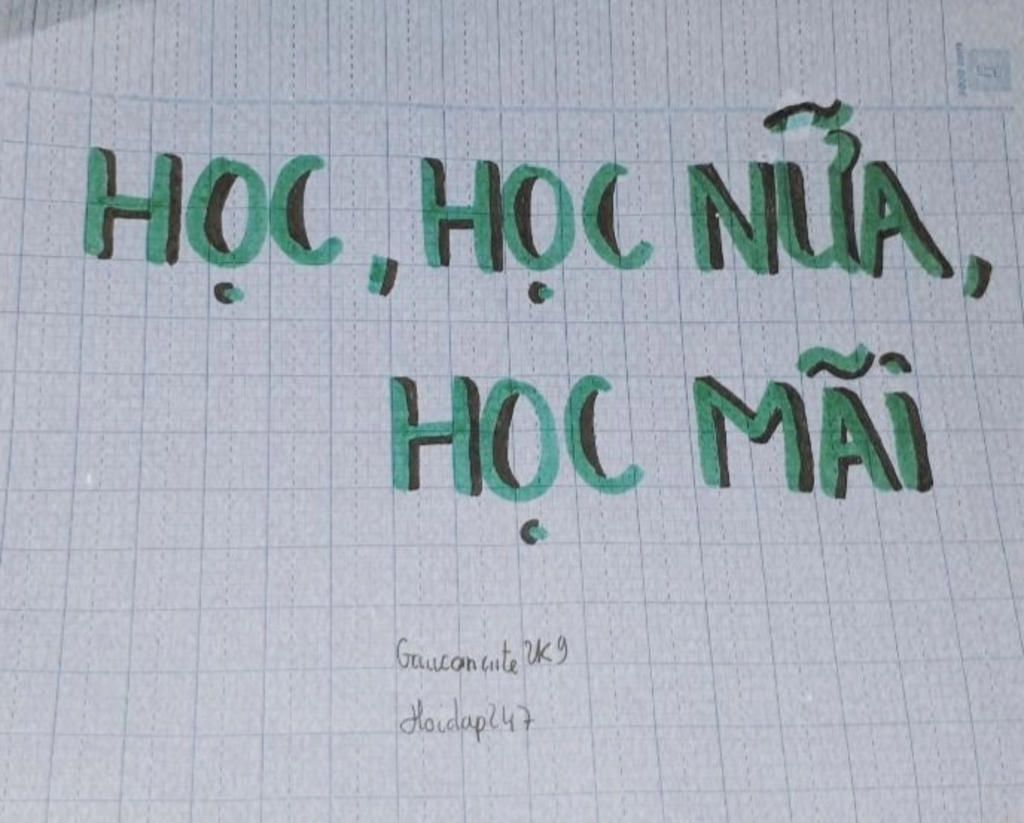 HỌC, HỌC NỮA,
HỌC MÃI
Gauconcute2K9
Hoidap247